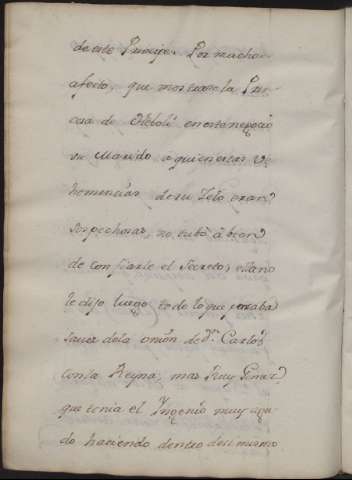 de este Principe. Por mucho
afecto, que mostrase la Prin
cesa de Eboli en este negocio
su Marido a quien estas ve
hemencias de su Zelo eran
sospechosas, no tubo a bien
de confiarle el Secreto; ella no
le dijo luego todo lo que pensaba
saver de la union de Dn. Carlos
con la Reyna, mas Ruy Gomez
que tenia el Yngenio muy agu
do haciendo dentro de si mismo